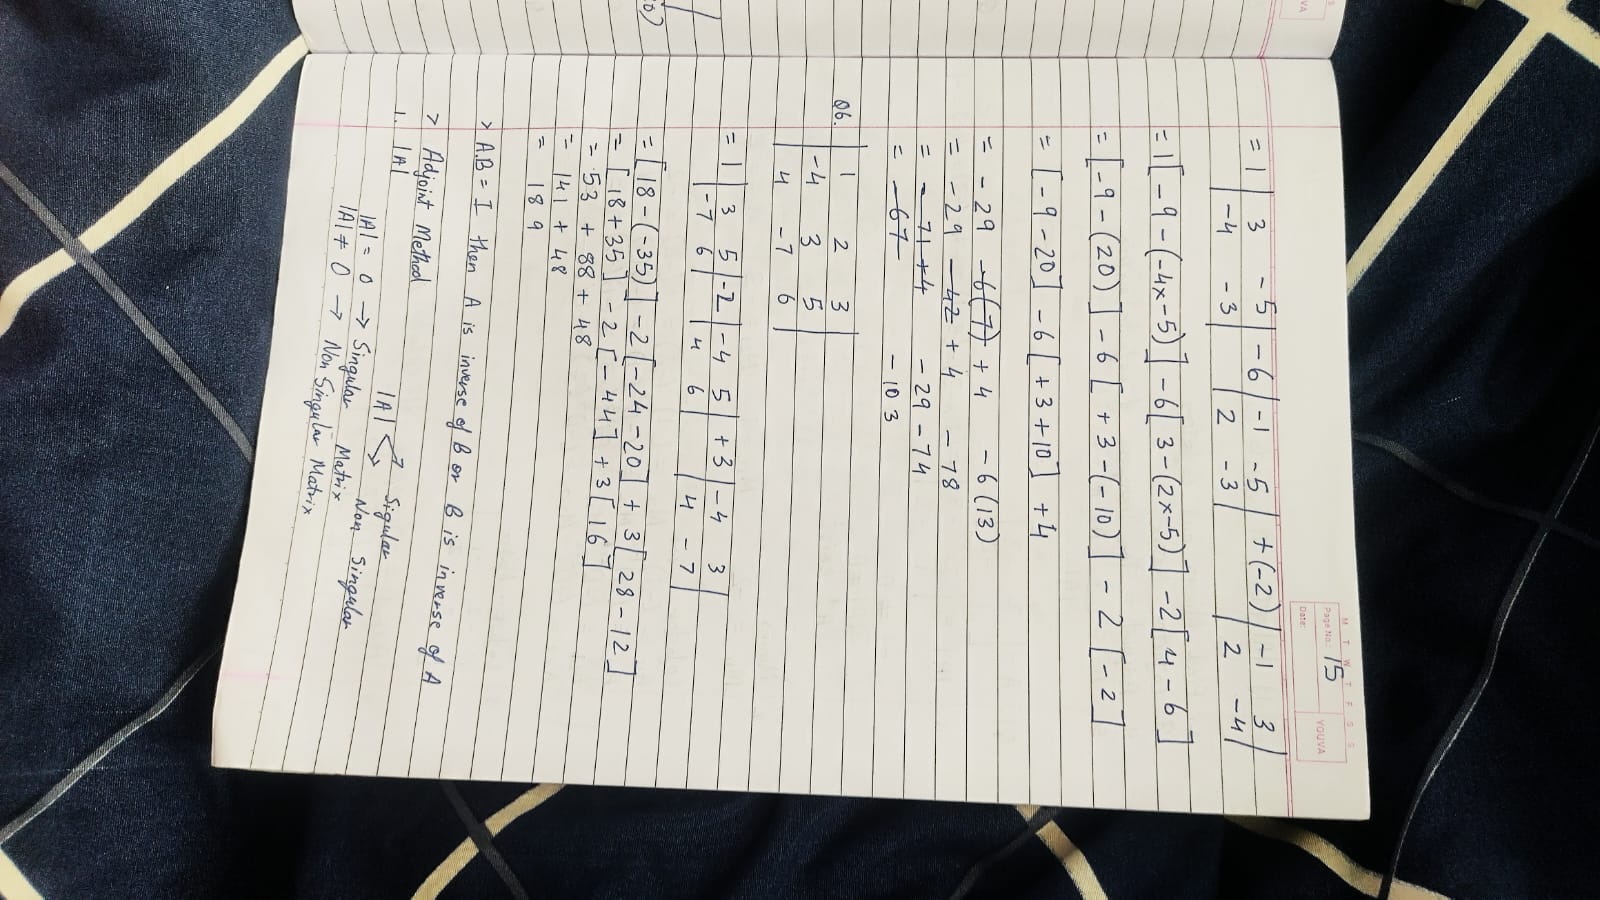 M T W T F S S
Page No.: 15
YOUVA
Date:
= 1 | 3 -5 | -6 | -1 -5 | +(-2) | -1 3 |
| -4 -3 | | 2 -3 | | 2 -4 |
= 1[-9-(-4x-5)] -6[3-(2x-5)] -2[4-6]
= [-9-(20)] -6[+3-(-10)] - 2 [-2]
= [-9-20] -6[+3+10] +4
= -29 -6(7) +4 -6(13)
= -29 -42 +4 -78
= -71+4 -29-74
= -67 -103
Q6. | 1 2 3 |
| -4 3 5 |
| 4 -7 6 |
= 1 | 3 5 | -2 | -4 5 | +3 | -4 3 |
| -7 6 | | 4 6 | | 4 -7 |
= [18-(-35)] -2[-24-20] + 3[28-12]
= [18+35] -2[-44] +3[16]
= 53 + 88 + 48
= 141 + 48
= 189
> A.B = I then A is inverse of B or B is inverse of A
> Adjoint Method
1. |A| |A| Sigular
Non Singular
|A| = 0 → Singular Matrix
|A| ≠ 0 → Non Singular Matrix